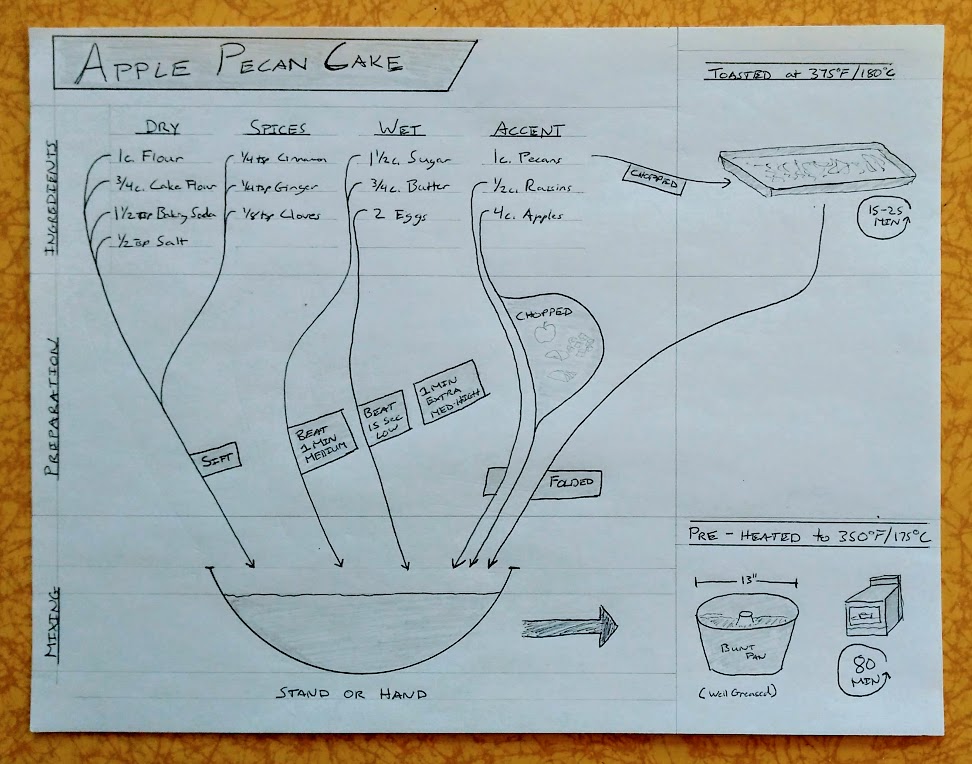 APPLE PECAN CAKE
TOASTED at 375°F/180°C
INGREDIENTS
DRY
1c. Flour
3/4c. Cake Flour
1 1/2 tsp Baking Soda
1/2 tsp Salt
SPICES
1/4 tsp Cinnamon
1/4 tsp Ginger
1/8 tsp Cloves
WET
1 1/2c. Sugar
3/4c. Butter
2 Eggs
ACCENT
1c. Pecans
1/2c. Raisins
4c. Apples
CHOPPED
15-25
MIN
PREPARATION
CHOPPED
SIFT
BEAT
1 MIN
MEDIUM
BEAT
15 Sec
LOW
1 MIN
EXTRA
MED-HIGH
FOLDED
MIXING
STAND OR HAND
PRE-HEATED to 350°F/175°C
13"
BUNT
PAN
(Well Greased)
80
MIN